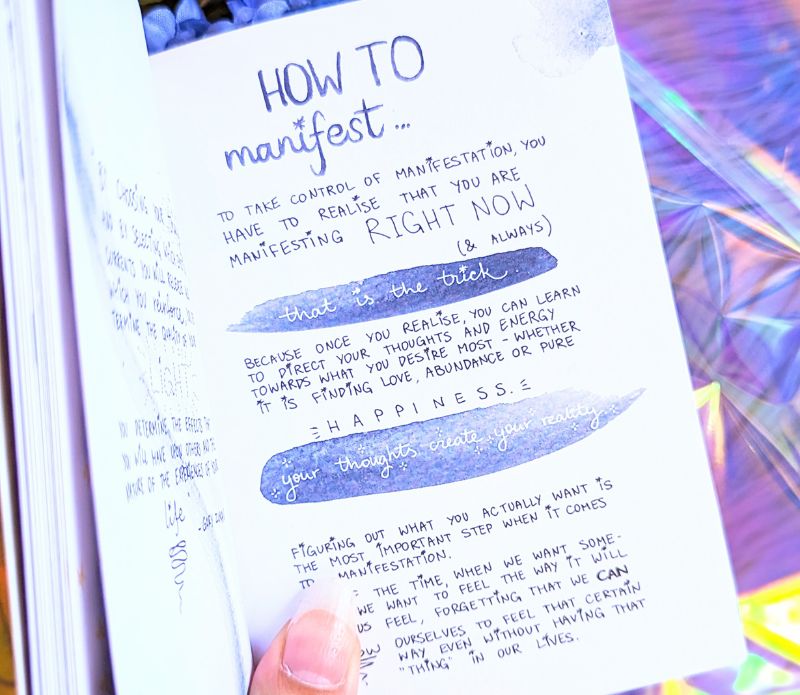 BY CHOOSING YOUR
AND BY SELECTING
CURRENTS YOU WILL
WHICH YOU
THE QUALITY OF YOUR
LIGHT
YOU DETERMINE THE EFFECTS
YOU WILL HAVE UPON OTHERS AND THE
NATURE OF THE EXPERIENCES OF YOUR
life
HOW TO
manifest...
TO TAKE CONTROL OF MANIFESTATION, YOU
HAVE TO REALISE THAT YOU ARE
MANIFESTING RIGHT NOW
(& ALWAYS)
that is the trick.
BECAUSE ONCE YOU REALISE, YOU CAN LEARN
TO DIRECT YOUR THOUGHTS AND ENERGY
TOWARDS WHAT YOU DESIRE MOST - WHETHER
IT IS FINDING LOVE, ABUNDANCE OR PURE
HAPPINESS.
your thoughts create your reality.
FIGURING OUT WHAT YOU ACTUALLY WANT IS
THE MOST IMPORTANT STEP WHEN IT COMES
TO MANIFESTATION.
THE TIME, WHEN WE WANT SOME-
WE WANT TO FEEL THE WAY IT WILL
US FEEL, FORGETTING THAT WE CAN
OURSELVES TO FEEL THAT CERTAIN
WAY EVEN WITHOUT HAVING THAT
"THING" IN OUR LIVES.